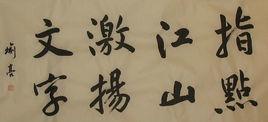 指點
江山
激揚
文字